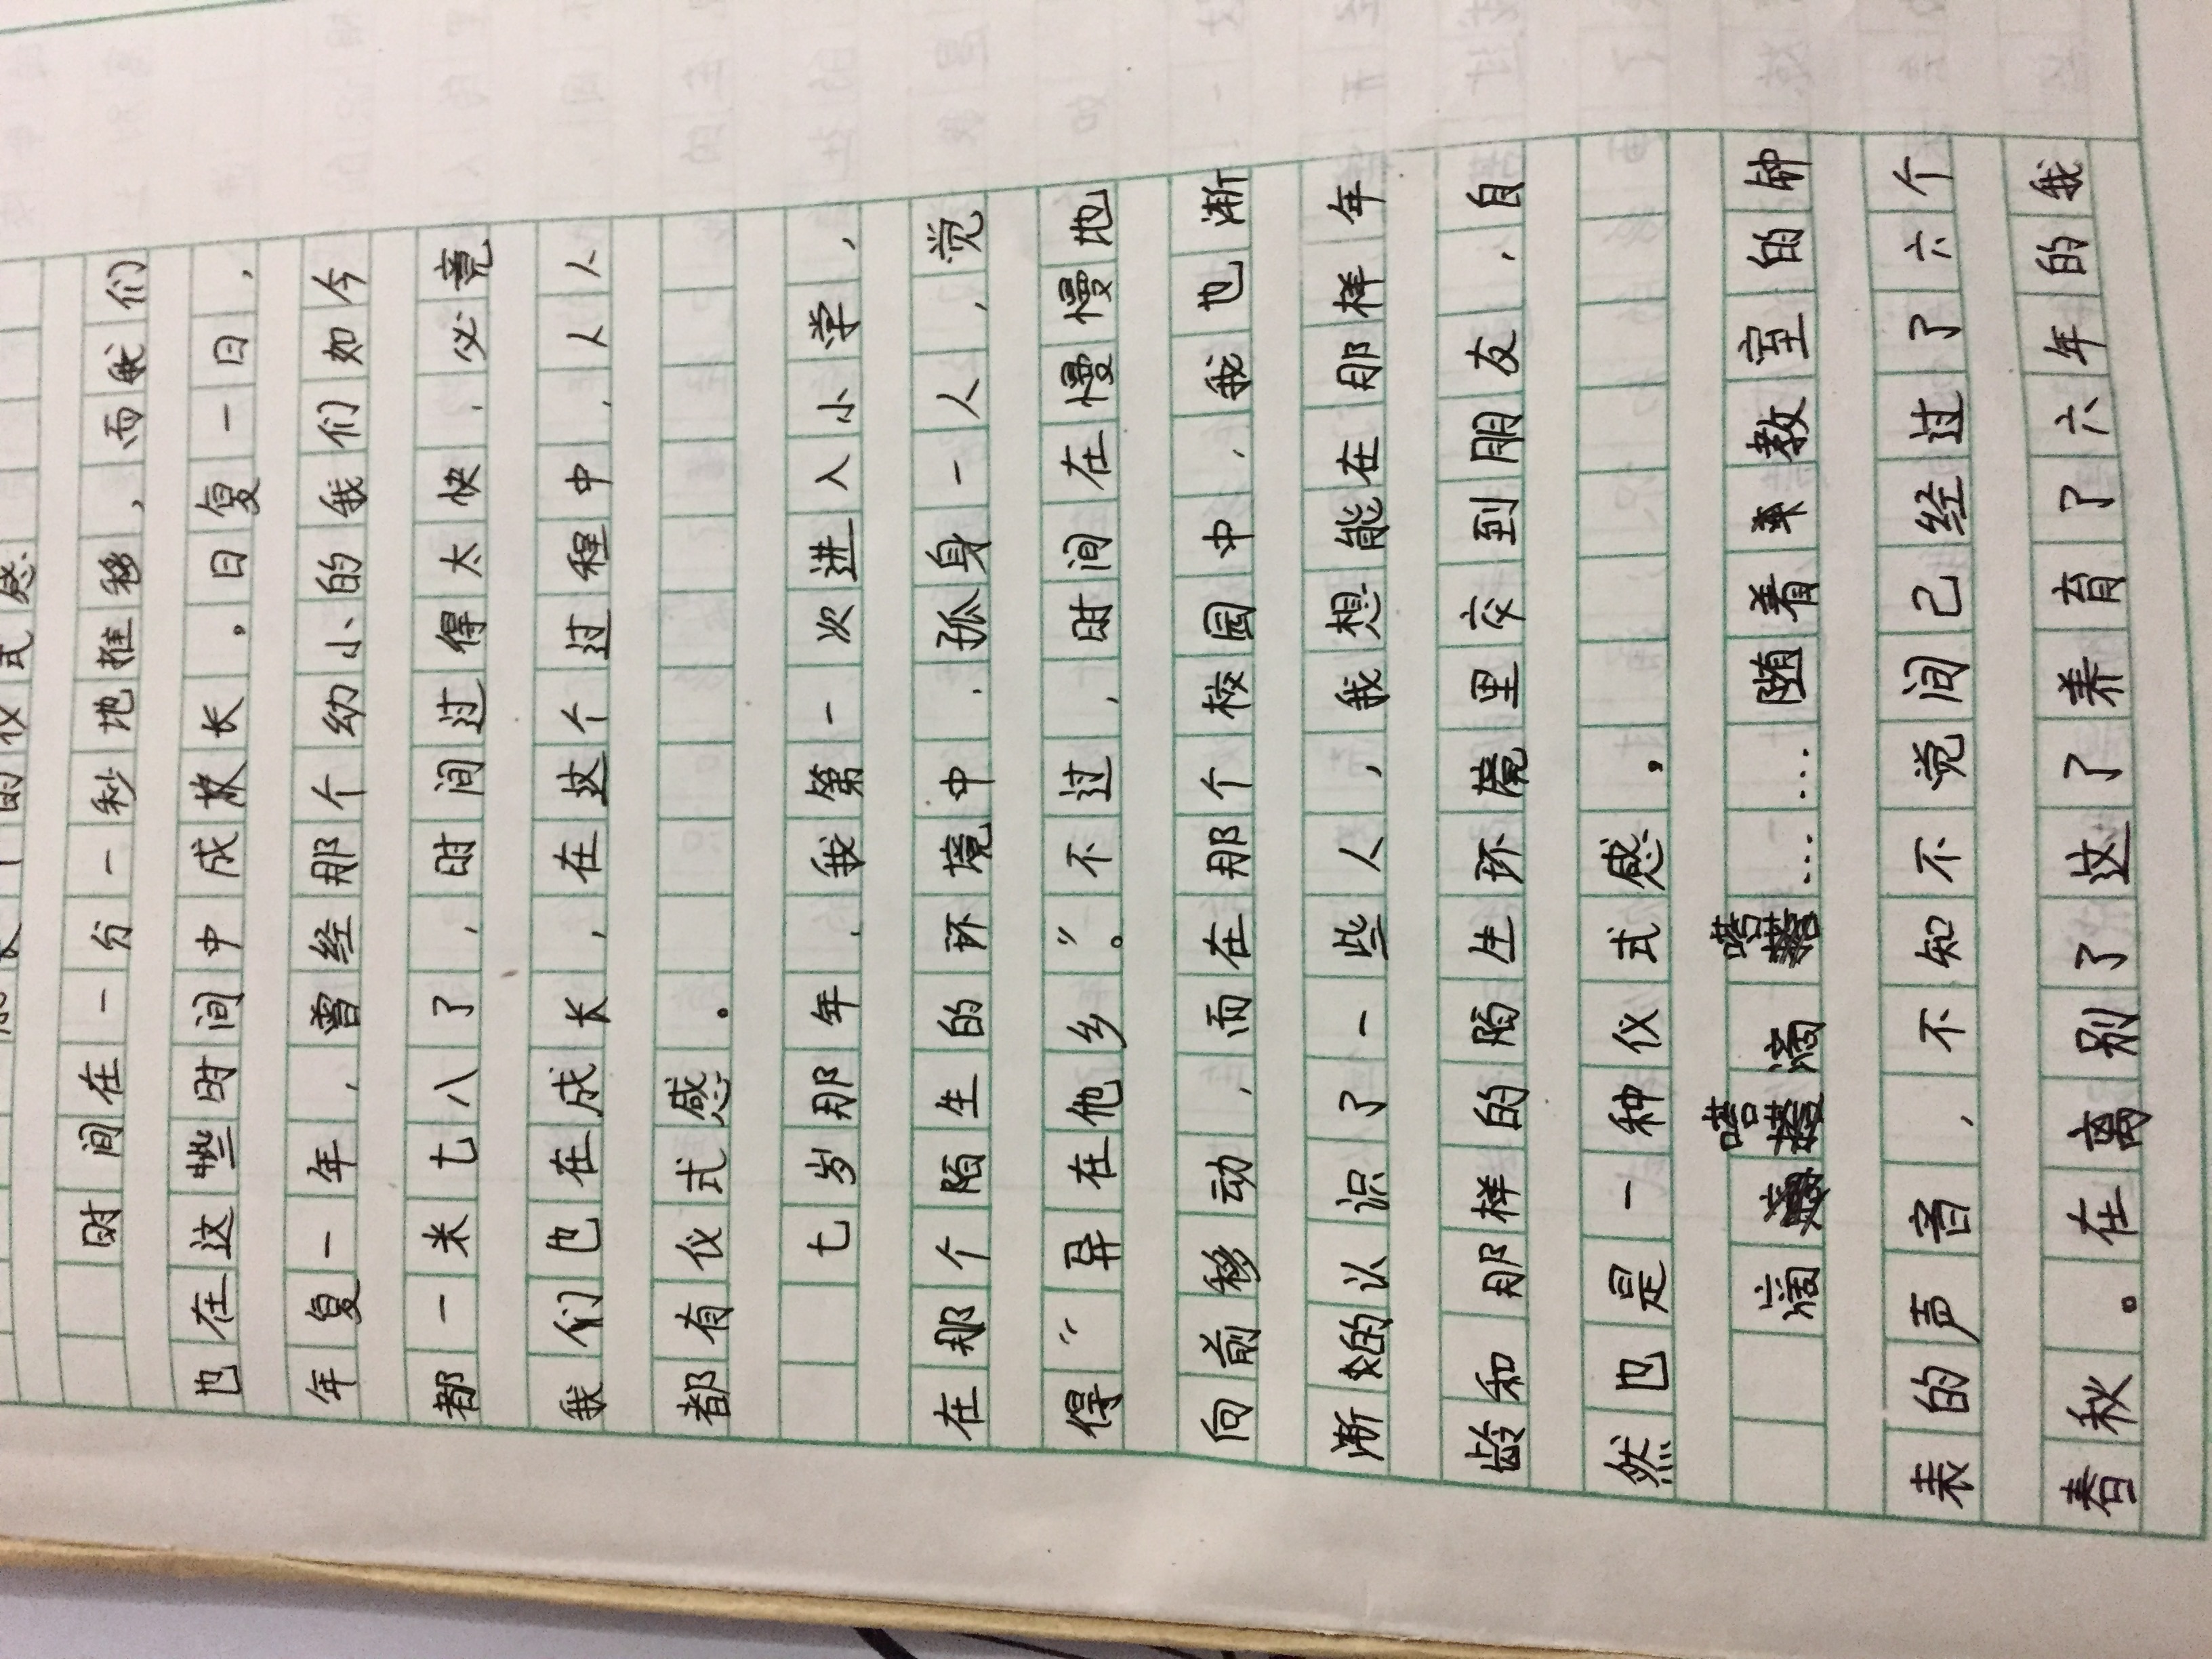 的仪式感
时间在一分一秒地推移，而我们
也在这些时间中成长。日复一日，
年复一年，曾经那个幼小的我们如今
都一米七八了，时间过得太快，必竟
我们也在成长，在这个过程中，人人
都有仪式感。
七岁那年，我第一次进入小学，
在那个陌生的环境中，孤身一人，觉
得“异在他乡”。不过，时间在慢慢地
向前移动，而在那个校园中，我也渐
渐的认识了一些人，我想能在那样年
龄和那样的陌生环境里交到朋友，自
然也是一种仪式感。
滴嗒滴嗒……随着教室的钟
表的声音，不知不觉间己经过了六个
春秋。在离别了这了养育了六年的我